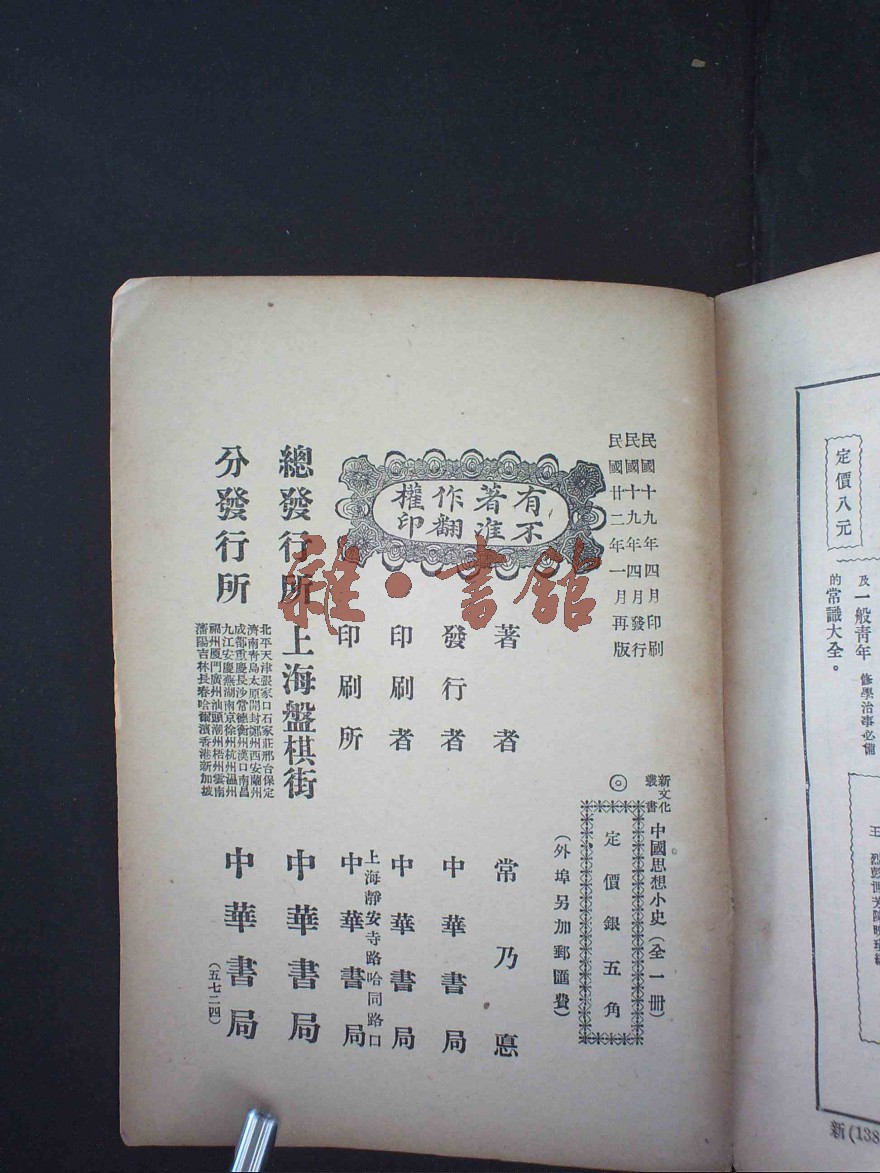 民國十九年四月印刷
民國十九年四月發行
民國廿二年一月再版
新文化
叢書
中國思想小史(全一冊)
◎
定價銀五角
(外埠另加郵匯費)
有著作權
不准翻印
著者 常乃悳
發行者 中華書局
印刷者 中華書局
印刷所 上海靜安寺路哈同路口
中華書局
總發行所 上海盤棋街 中華書局
分發行所
北平天津張家口石家莊邢台保定
濟南青島太原開封鄭州西安蘭州
成都重慶長沙常德衡州漢口南昌
九江安慶蕪湖南京徐州杭州溫州
福州厦門廣州汕頭潮州梧州雲南
瀋陽吉林長春哈爾濱香港新加坡
中華書局
(五七二四)
雜·書館
定價八元
及一般青年修學治事必備
的常識大全。
新(138